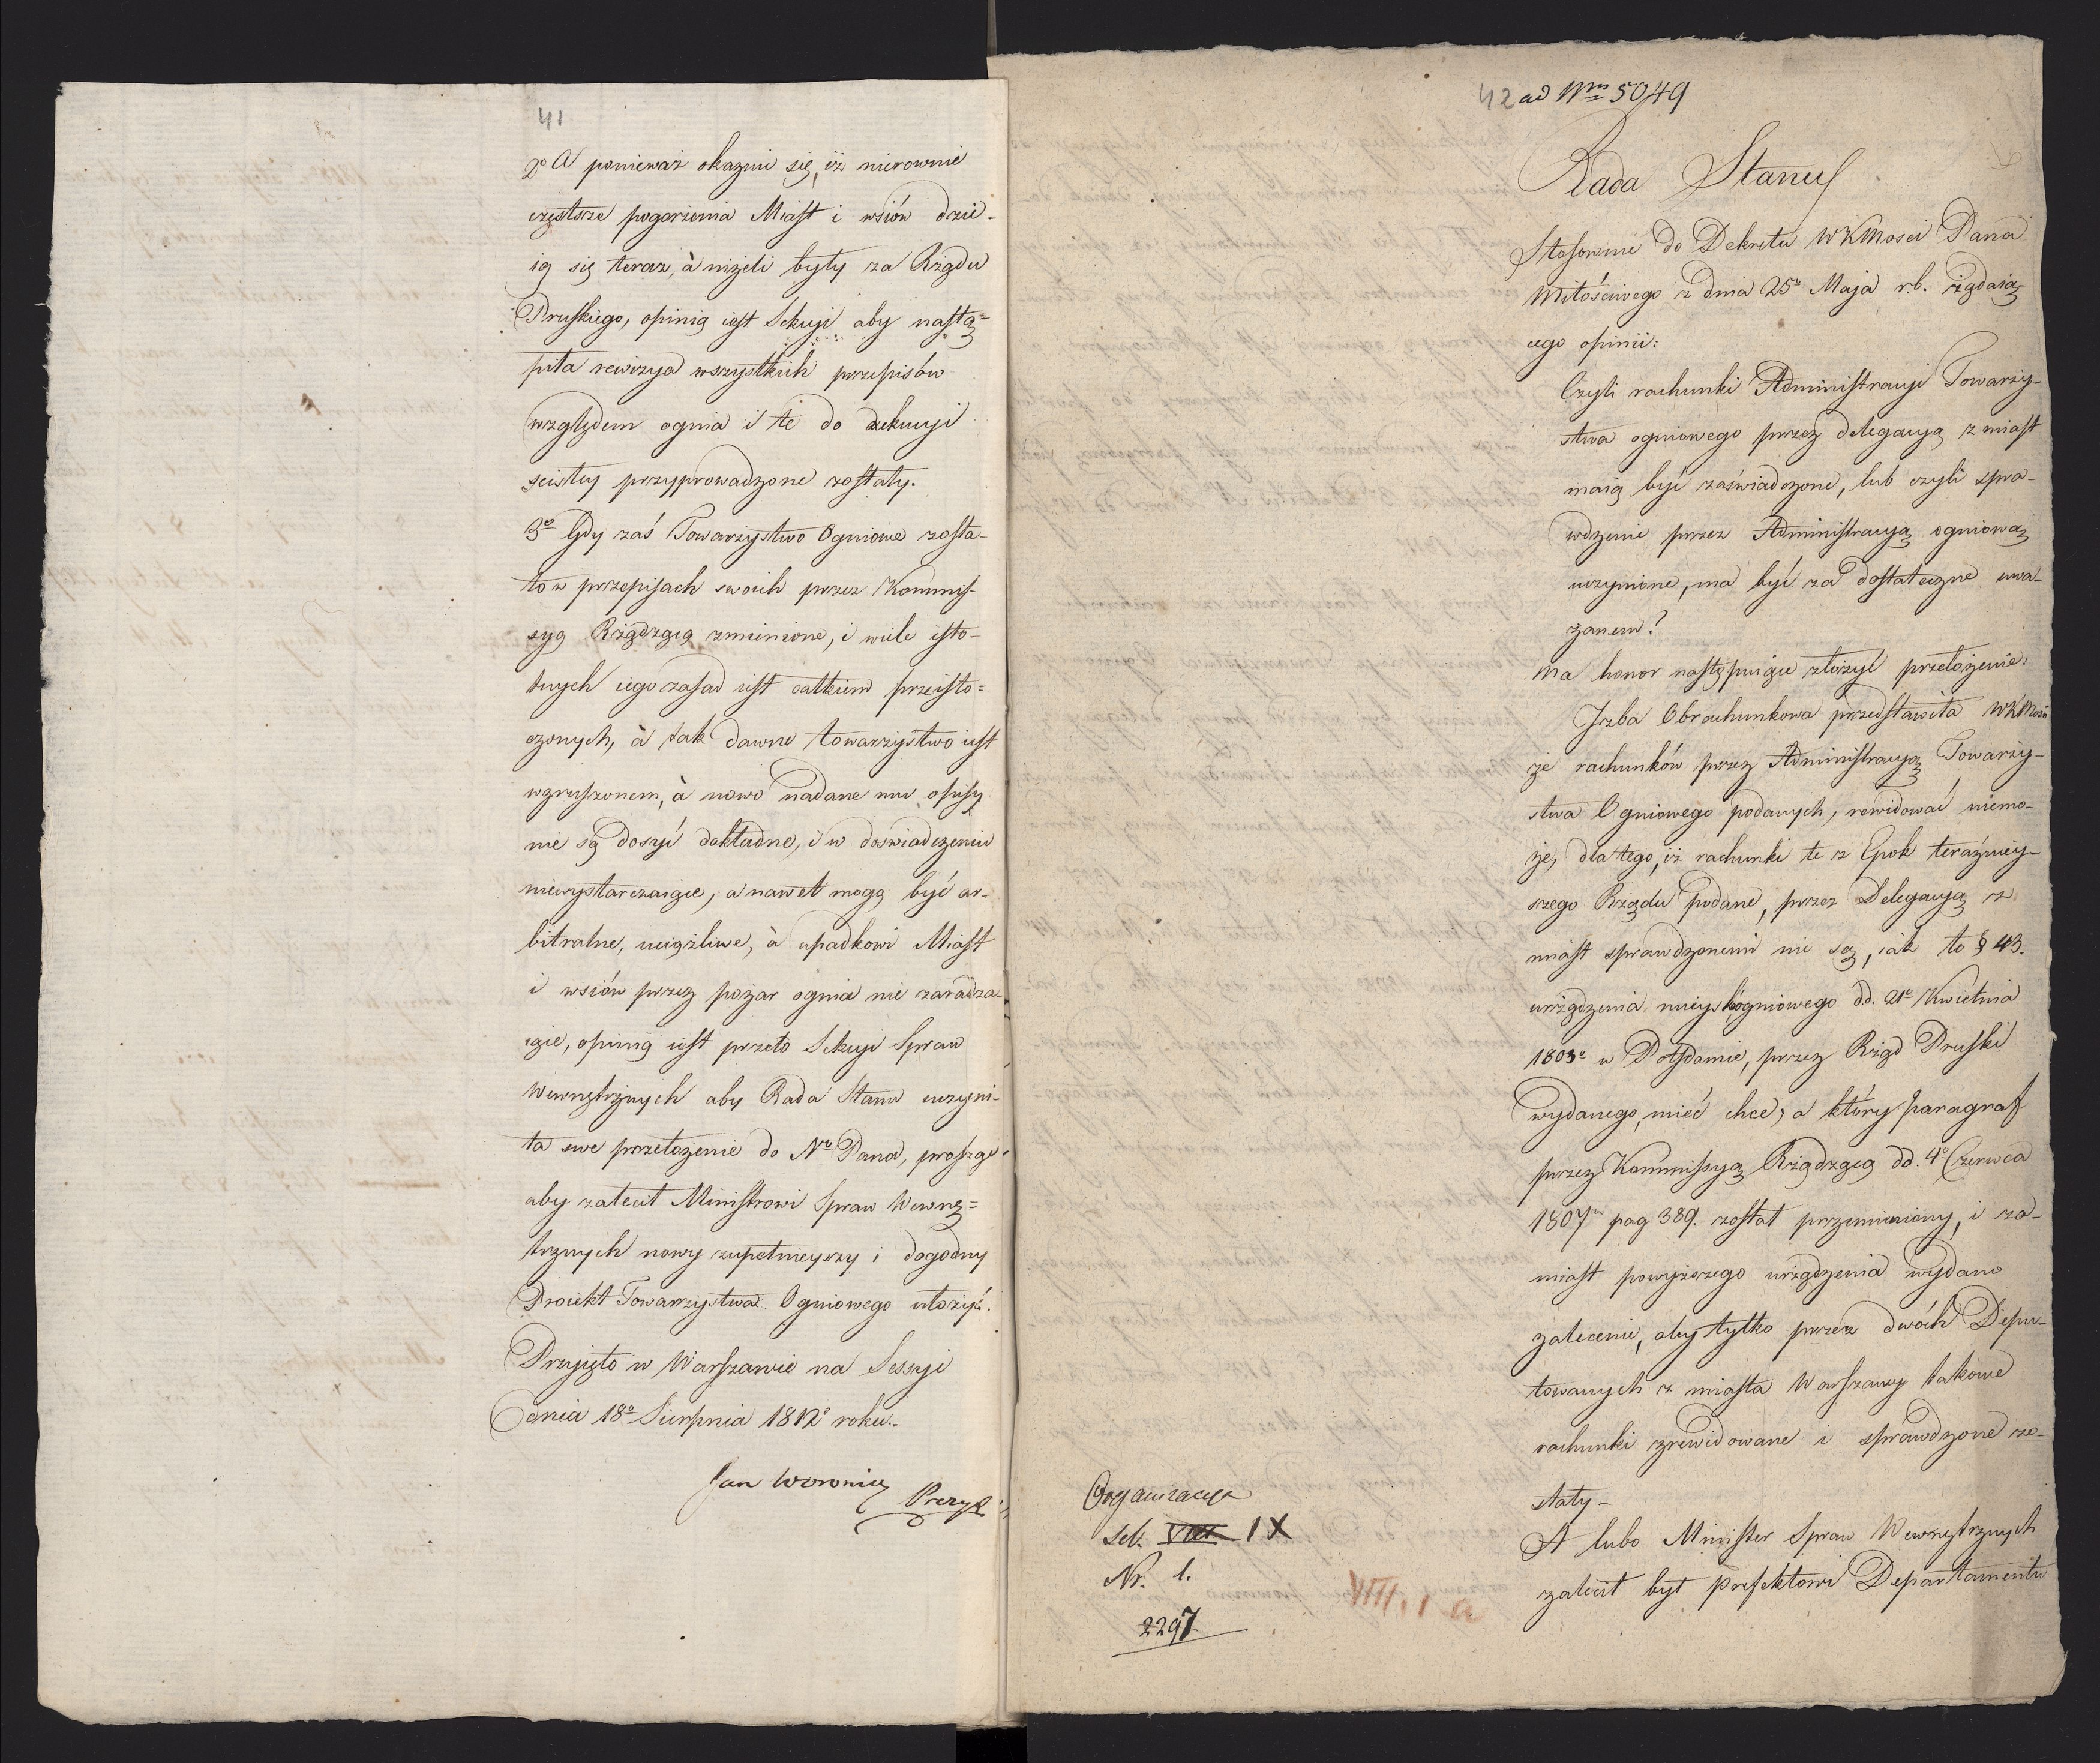 41
2o A ponieważ okazuie się, iż nierownie
częstsze pogorzenia Miast i wsiów dzie-
ią się teraz, à niżeli były za Rządu
Pruskiego, opinią iest Sekcyi aby nastą=
piła rewizya wszystkich przepisów
względem ognia i te do exekucyi
scisłey przyprowadzone zostały.
3o Gdy zaś Towarzystwo Ogniowe zosta-
ło w przepisach swoich przez Kommis-
syą Rządzącą zmienione, i wiele isto-
tnych iego zasad iest całkiem przeisto=
czonych, à tak dawne towarzystwo iest
wzruszonem, à nowo nadane mu opisy
nie są dosyć dokładne, i w doświadczeniu
niewystarczaiące, a nawet mogą być ar-
bitralne, uciążliwe, à upadkowi Miast
i wsiów przez pożar ognia nie zaradza-
iące, opinią iest przeto Sekcyi Spraw
Wewnętrznych aby Rada Stanu uczyni-
ła swe przełożenie do No Pana, prosząc
aby zalecił Ministrowi Spraw Wewnę=
trznych nowy zupełnieyszy i dogodny
Proiekt Towarzystwa Ogniowego ułożyć.
Przyięto w Warszawie na Sessyi
dnia 18o Sierpnia 1812o roku.
Jan Woronicz
Prezyd
42 ad Nrm 5049
Rada Stanu
Stosownie do Dekretu WKMosci Pana
Miłościwego z dnia 25o Maja r.b. żądaią-
cego opinii:
Czyli rachunki Administracyi Towarzy-
stwa ogniowego przez delegacyą z miast
maią być zaświadczone, lub czyli spra-
wdzenie przez Administracyą ogniową
uczynione, ma być za dostateczne uwa-
żanem?
Ma honor następuiące złożyć przełożenie:
Jzba Obrachunkowa przedstawiła WKMosci
że rachunków przez Administracyą Towarzy-
stwa Ogniowego podanych, rewidować niemo-
że, dla tego, iż rachunki te z Epok teraźniey-
szego Rządu podane, przez Delegacyą z
miast sprawdzonemi nie są, iak to § 43.
urządzenia mieysko-ogniowego dd. 21o Kwietnia
1803o w Potsdamie, przez Rząd Pruski
wydanego, mieć chce; a który paragraf
przez Kommissyą Rządzącą dd. 4o Czerwca
1807m pag 389. został przemieniony, i za-
miast powyższego urządzenia wydano
zalecenie, aby tylko przez dwóch Depu-
towanych z miasta Warszawy takowe
rachunki zrewidowane i sprawdzone zo-
stały-
A lubo Minister Spraw Wewnętrznych
zalecił był Prefektowi Departamentu
Organizacya
Sek. VIII IX
Nr. 1.
2297
VIII. 1 a